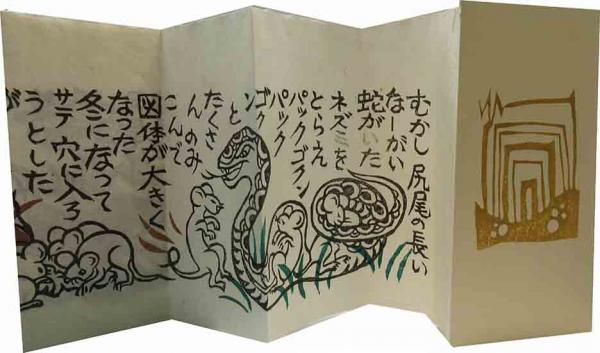 むかし 尻尾の長い
なーがい
蛇がいた
ネズミを
とらえ
パックゴクン
パック
ゴク
ンと
たくさ
んのみ
こんで
図体が大きく
なった
冬になって
サテ 穴に入ろ
うとした
が